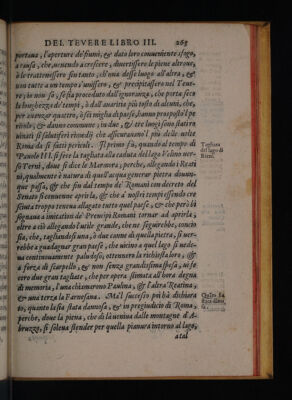 DEL TEVERE LIBRO III. 263
portuna, l'aperture de' fiumi, & dato loro conueniente sfogo,
à causa, che, uenendo a crescere, diuertissero le piene altroue,
ò le trattenessero fin tanto, ch'una desse luogo all'altra, &
non tutte a un tempo s'unissero, & precipitassero nel Teue-
re; io non so, se sia proceduto dall'ignoranza, che porta seco
la lunghezza de' tempi, ò dall'auaritia più tosto di alcuni, che,
per auanzar quattro, ò sei miglia di paese, hanno proposto l'pe
ricolo, & danno commune, in due, & tre luoghi sono stati ri
uinati si salutiferi rimedij che assicurauano l più delle uolte
Roma da si fatti pericoli. Il primo fù, quando al tempo di
Paulo III. si fece la tagliata alla caduta del lago Velino uer-
so Terni, doue si dice le Marmora; perche, allegando i Reati
ni, qualmente è natura di quell'acqua generar pietra douun-
que passa, & che fin dal tempo de' Romani con decreto del
Senato si conuenne aprirla, & che a' nostri tempi essendo cre
sciuta troppo teneua allagato tutto quel paese, & che però bi
sognaua a imitation de' Prencipi Romani tornar ad aprirla,
oltre a ciò allegando l'utile grande, che ne seguirebbe, concio
sia, che, tagliandosi una, ò due canne di quella pietra, si uer-
rebbe a guadagnar gran paese, che uicino a quel lago si uede-
ua continouamente paludoso, ottennero la richiesta loro, &
a forza di scarpello, & non senza grandissima spesa, ui fe-
cero due gran tagliate, che per opera stimata all'hora degna
di memoria, l'una chiamarono Paulina, & l'altra Reatina,
& una terza la Farnesana. Ma'l successo poi hà dichiara
to, quanto la sia stata dannosa, & in pregiudicio di Roma,
perche, doue la piena, che di là ueniua dalle montagne d'A-
bruzzo, si soleua stender per quella pianura intorno al lago,
a tal
Tagliata
del lago di
Rieti.